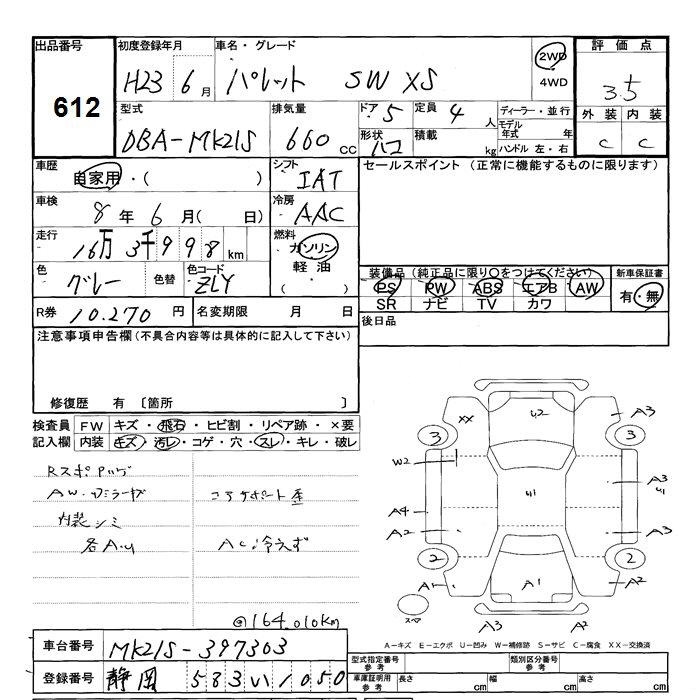 出品番号 初度登録年月 車名・グレード 評価点
612 H23 6月 パレット SW XS 2WD 4WD 3.5
外装 内装
C C
型式 排気量 ドア 5 定員 4人 ディーラー・並行
DBA-MK21S 660cc 形状 ハコ 積載 kg モデル年式 年
ハンドル 左・右
車歴 自家用・( ) シフト IAT セールスポイント (正常に機能するものに限ります)
車検 8年 6月( 日) 冷房 AAC
走行 16万3千998km 燃料 ガソリン
軽油
( )
色 グレー 色替 色コード ZLY 装備品 (純正品に限り○をつけてください) 新車保証書
PS PW ABS エアB AW 有・無
SR ナビ TV カワ
R券 10.270円 名変期限 月 日 後日品
注意事項申告欄 (不具合内容等は具体的に記入して下さい)
修復歴 有 〔箇所 〕
検査員 FW キズ・飛石・ヒビ割・リペア跡・×要
記入欄 内装 キズ・汚レ・コゲ・穴・スレ・キレ・破レ
AW・
内装シミ コアサポート歪
各A.U AC冷えず
@164.010km
XX U2 A3
3 3
W2 U1 A3 U1
A4
A2 A3
2 2
A1 A1 A2
スペア A3 A2
A-キズ E-エクボ U-凹み W-補修跡 S-サビ C-腐食 XX-交換済
車台番号 MK21S-397303
登録番号 静岡 583 い 1050
型式指定番号 参考 類別区分番号 参考
車庫証明用 参考 長さ cm 幅 cm 高さ cm